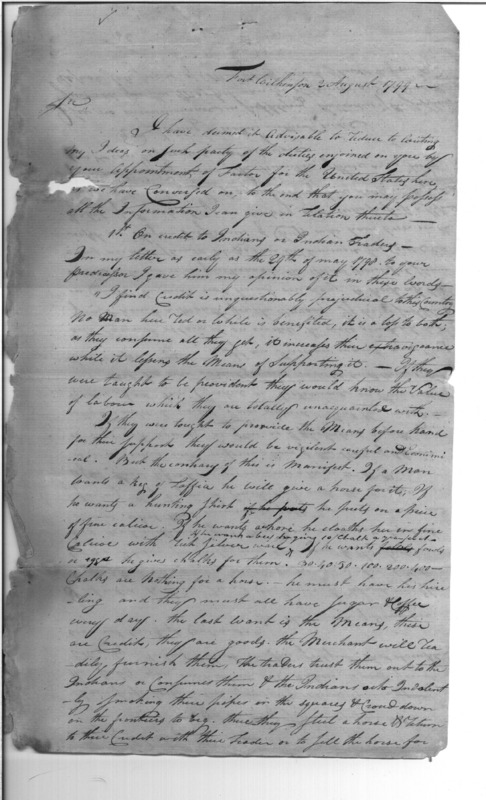 Fort Wilkinson 2 August 1799 —
Sir
I have deemed it advisable to reduce to writing
my Ideas on such parts of the duties enjoined on you by
your Appointment of Factor for the United States here
as we have Conversed on, to the end that you may possess
all the Information I can give in relation thereto —
1st. On credit to Indians or Indian Traders. —
In my letter as early as the 27th of may 1798 to your
predecessor I gave him my opinion of it in these words —
"I find Credit is unquestionably prejudicial to this Country
No man here Red or White is benefited, it is a loss to both,
as they consume all they get, it increases their extravagance
while it lessens the Means of Supporting it. — If they
were taught to be provident they would know the Value
of labour which they are totally unacquainted with. —
If they were taught to provide the Means before hand
for their support they would be vigilent careful and œconomi
cal. But the contrary of this is Manifest. If a Man
wants a keg of Taffia he will give a horse for it, If
he wants a hunting Shirt he puts on a piece
of fine calicoe. If he wants whore he cloaths her in fine
Calicoe with Silver If he wants fowls
or eggs he gives chalks for them. 30. 40. 50. 100. 200. 400 —
Chalks are Nothing for a horse. — he must have his hire
-ling and they must all have Sugar & Coffee
every day. the last want is the Means, these
are Credits, they are goods. the Merchant will rea
dily furnish them, The traders trust them out to the
Indians or Consumes them & the Indians who Indolent
-ly smoking their pipes in the squares & down
on the frontiers to beg. there they steal a horse & return
to their Credit with their Trader or to sell the horse for